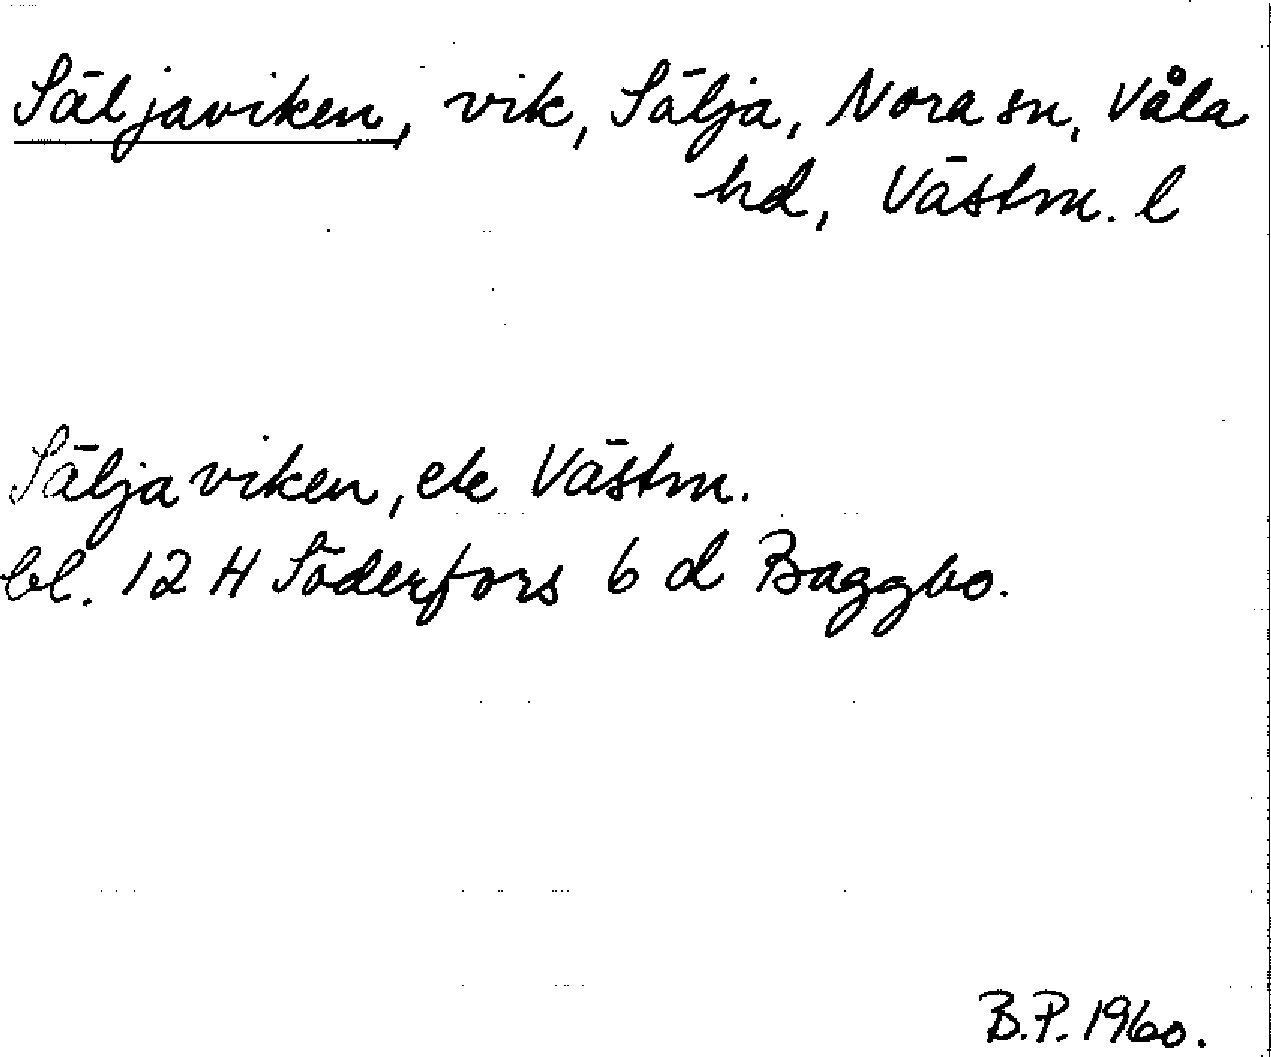 Säljaviken, vik, Sälja, Nora sn, Våla
hd, Västm. l
Säljaviken, ek Västm.
bl. 12 H Söderfors 6 d Baggbo.
B.P. 1960.